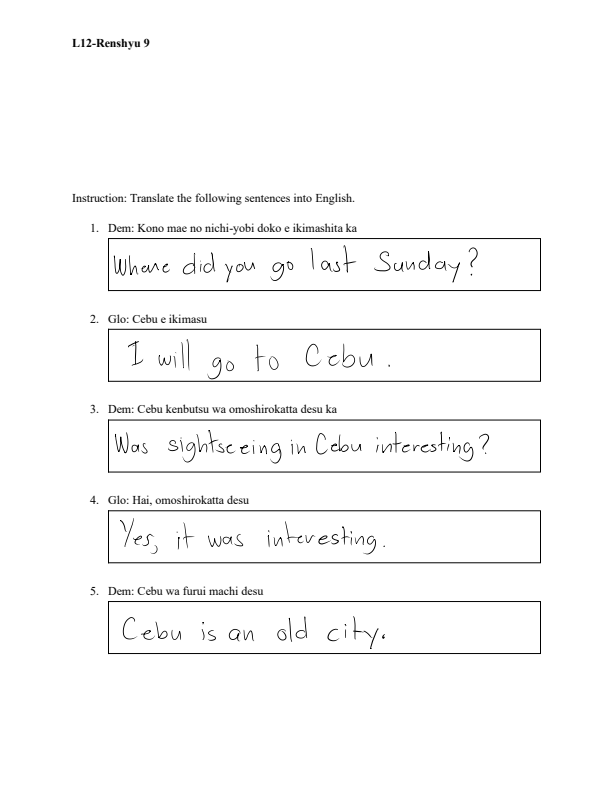 L12-Renshyu 9
Instruction: Translate the following sentences into English.
1. Dem: Kono mae no nichi-yobi doko e ikimashita ka
Where did you go last Sunday?
2. Glo: Cebu e ikimasu
I will go to Cebu.
3. Dem: Cebu kenbutsu wa omoshirokatta desu ka
Was sightseeing in Cebu interesting?
4. Glo: Hai, omoshirokatta desu
Yes, it was interesting.
5. Dem: Cebu wa furui machi desu
Cebu is an old city.